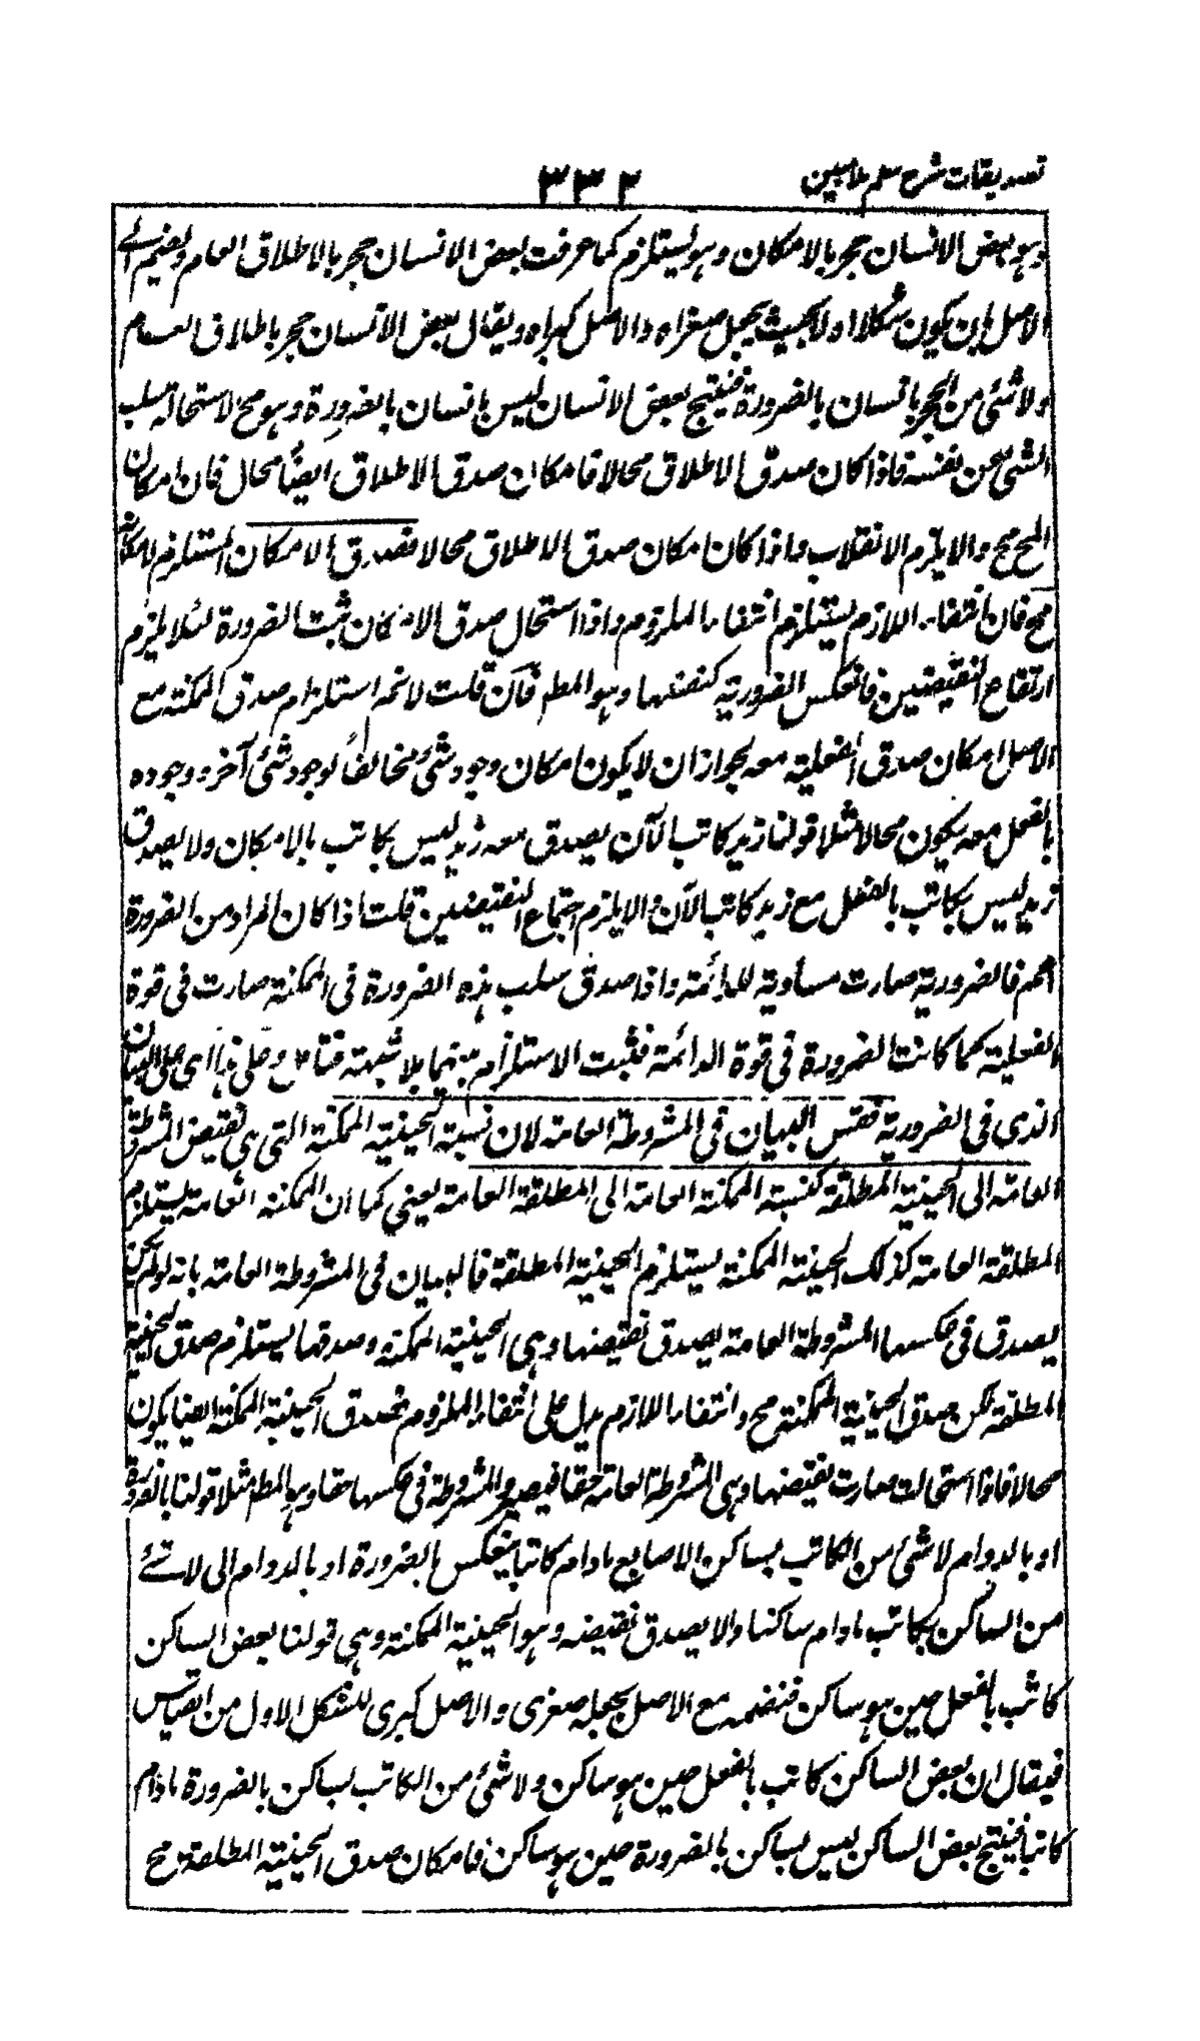 تصديقات شرح سلم ملا مبين
٣٣٢
وهو بعض الانسان حجر بالامكان وهو يستلزم كما عرفت بعض الانسان حجر بالاطلاق العام ويضم الى
الاصل بان يكون شكلا اولا بحيث يجعل صغراه والاصل كبراه ويقال بعض الانسان حجر باطلاق العام
ولا شئ من الحجر بانسان بالضرورة فينتج بعض الانسان ليس بانسان بالضرورة وهو مح لاستحالة سلب
الشئ عن نفسه فاذا كان صدق الاطلاق محالا فامكان صدق الاطلاق ايضًا محال فان امكان
المح مح والا يلزم الانقلاب واذا كان امكان صدق الاطلاق محالا فصدق الامكان المستلزم لامكانه
مح فان انتفاء اللازم يستلزم انتفاء الملزوم واذا استحال صدق الامكان ثبت الضرورة لئلا يلزم
ارتفاع النقيضين فانعكس الضرورية كنفسها وهو المطم فان قلت لا نم استلزام صدق الممكنة مع
الاصل امكان صدق الفعلية معه لجواز ان لا يكون امكان وجود شئ مخالفًا لوجود شئ آخر ووجوده
بالفعل معه يكون محالا مثلا قولنا زيد كاتب الآن يصدق معه زيد ليس بكاتب بالامكان ولا يصدق
زيد ليس بكاتب بالفعل مع زيد كاتب الآن والا يلزم اجتماع النقيضين قلت اذا كان المراد من الضرورة
اعم فالضرورية صارت مساوية للدائمة واذا صدق سلب هذه الضرورة فى الممكنة صارت فى قوة
الفعلية كما كانت الضرورة فى قوة الدائمة فثبت الاستلزام بينهما بلا شبهة فتامل وعلى هذا اى على البيان
الذى فى الضرورية فقس البيان فى المشروطة العامة لان نسبة الحينية الممكنة التى هى نقيض المشروطة
العامة الى الحينية المطلقة كنسبة الممكنة العامة الى المطلقة العامة يعنى كما ان الممكنة العامة يستلزم
المطلقة العامة كذلك الحينية الممكنة يستلزم الحينية المطلقة فالبيان فى المشروطة العامة بانه لو لم يكن
يصدق فى عكسها المشروطة العامة يصدق نقيضها وهى الحينية الممكنة وصدقها يستلزم صدق الحينية
المطلقة لكن صدق الحينية الممكنة مح وانتفاء اللازم يدل على انتفاء الملزوم فصدق الحينية الممكنة ايضا يكون
محالا فاذا استحالت صارت نقيضها وهى المشروطة العامة حقا فيصدق المشروطة فى عكسها حقا وهو المطم مثلا قولنا بالضرورة
او بالدوام لا شئ من الكاتب بساكن الاصابع مادام كاتبا ينعكس بالضرورة او بالدوام الى لا شئ
من الساكن بكاتب مادام ساكنا والا يصدق نقيضه وهو الحينية الممكنة وهى قولنا بعض الساكن
كاتب بالفعل حين هو ساكن فنضمه مع الاصل بجعله صغرى والاصل كبرى للشكل الاول من القياس
فيقال ان بعض الساكن كاتب بالفعل حين هو ساكن ولا شئ من الكاتب بساكن بالضرورة مادام
كاتبا فينتج بعض الساكن ليس بساكن بالضرورة حين هو ساكن فامكان صدق الحينية المطلقة مح